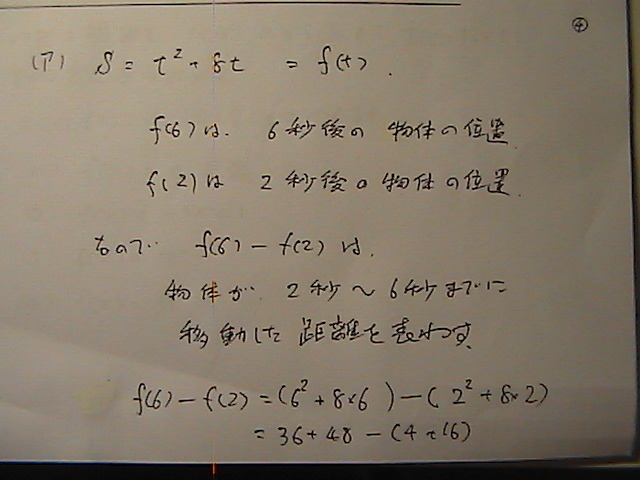 ④
(ア) S = t² + 8t = f(t).
f(6)は. 6秒後の物体の位置.
f(2)は 2秒後の物体の位置.
なので f(6) − f(2) は.
物体が. 2秒〜6秒までに
移動した距離を表わす.
f(6) − f(2) = (6² + 8×6) − (2² + 8×2)
= 36 + 48 − (4 + 16)